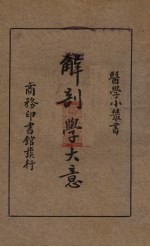 醫學小叢書
解剖學大意
商務印書館發行